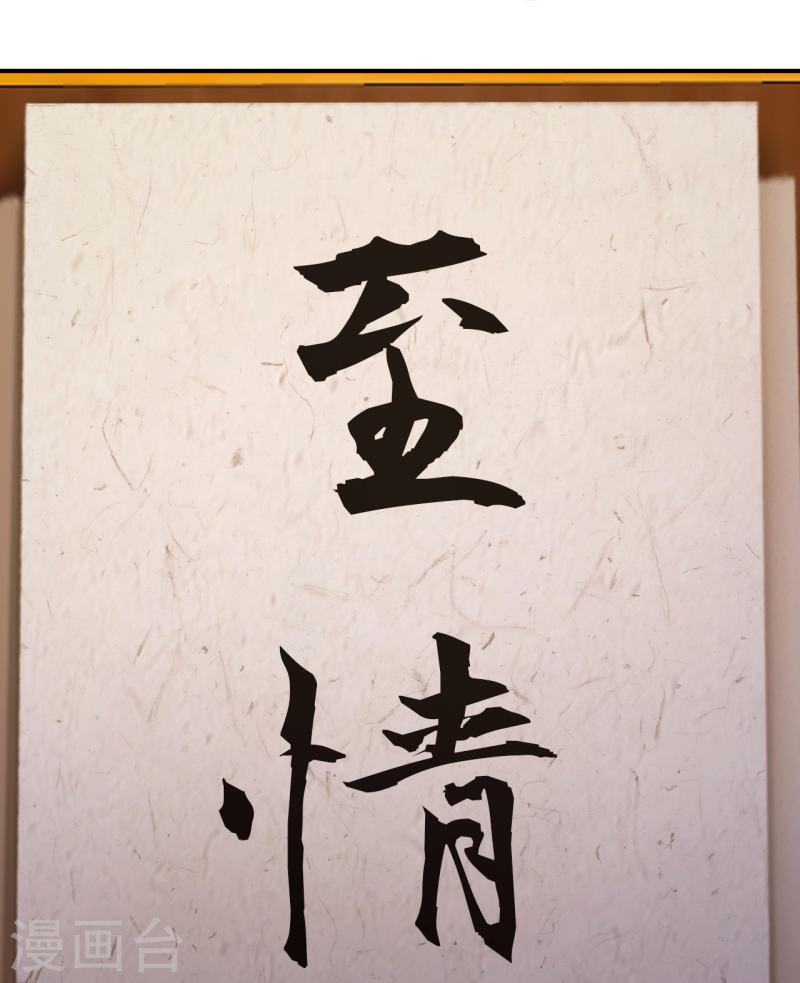 至
情
漫画台